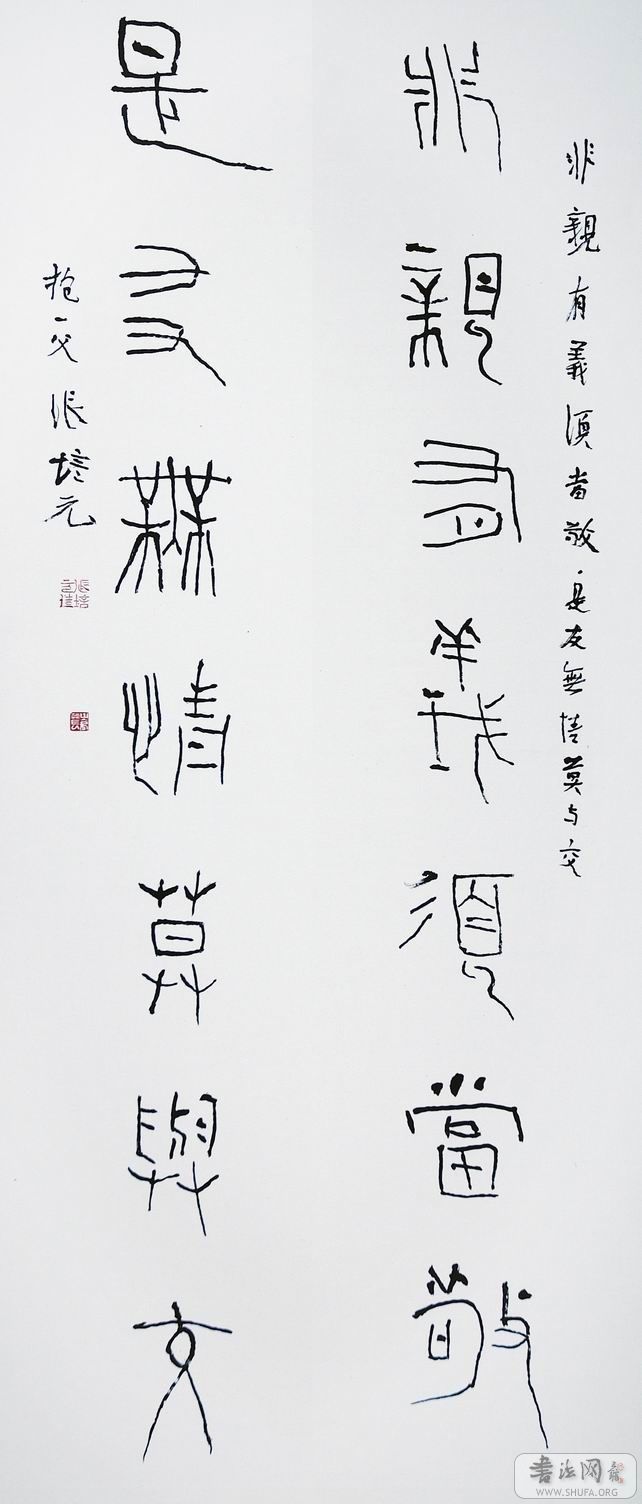 非親有義須當敬是友無情莫与交
非親有義須當敬
是友無情莫與交
抱一 張培元
書法网
WWW.SHUFA.ORG